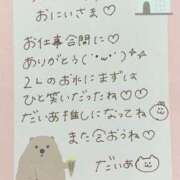 おにいさま♡
お仕事合間に♡
ありがとう(˙ᵕ˙)
2Lのお水にまずは
ひと笑いだったね♡
だいあ推しになってね
また会おうね♡
だいあ